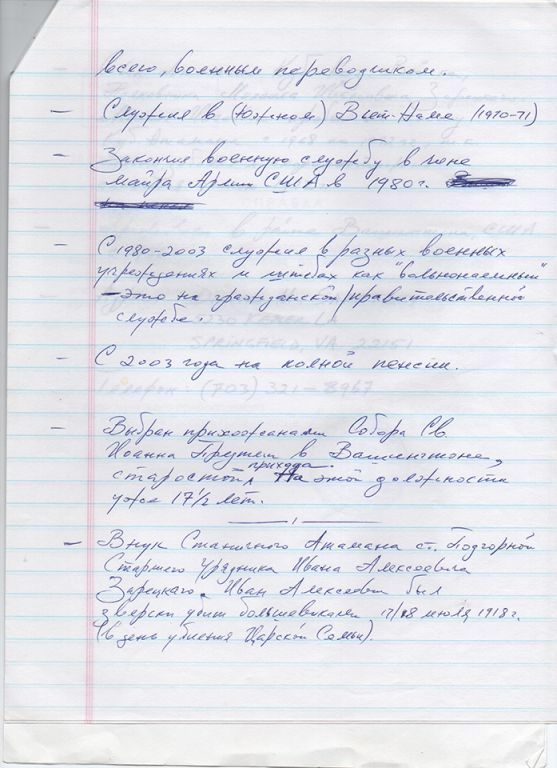 всего, военным переводчиком.
— Служил в (Южном) Вьет-Наме (1970-71)
— Закончил военную службу в чине
майора Армии США в 1980г.
— С 1980-2003 служил в разных военных
учреждениях и штабах как "вольнонаемный"
— это на гражданской/правительственной
службе.
— С 2003 года на полной пенсии.
— Выбран прихожанами Собора Св.
Иоанна Предтечи в Вашингтоне,
старостой прихода. На этой должности
уже 17½ лет.
— Внук Станичного Атамана ст. Подгорной
Старшего Урядника Ивана Алексеевича
Зарецкого. Иван Алексеевич был
зверски убит большевиками 17/18 июля 1918г.
(в день убиения Царской Семьи).